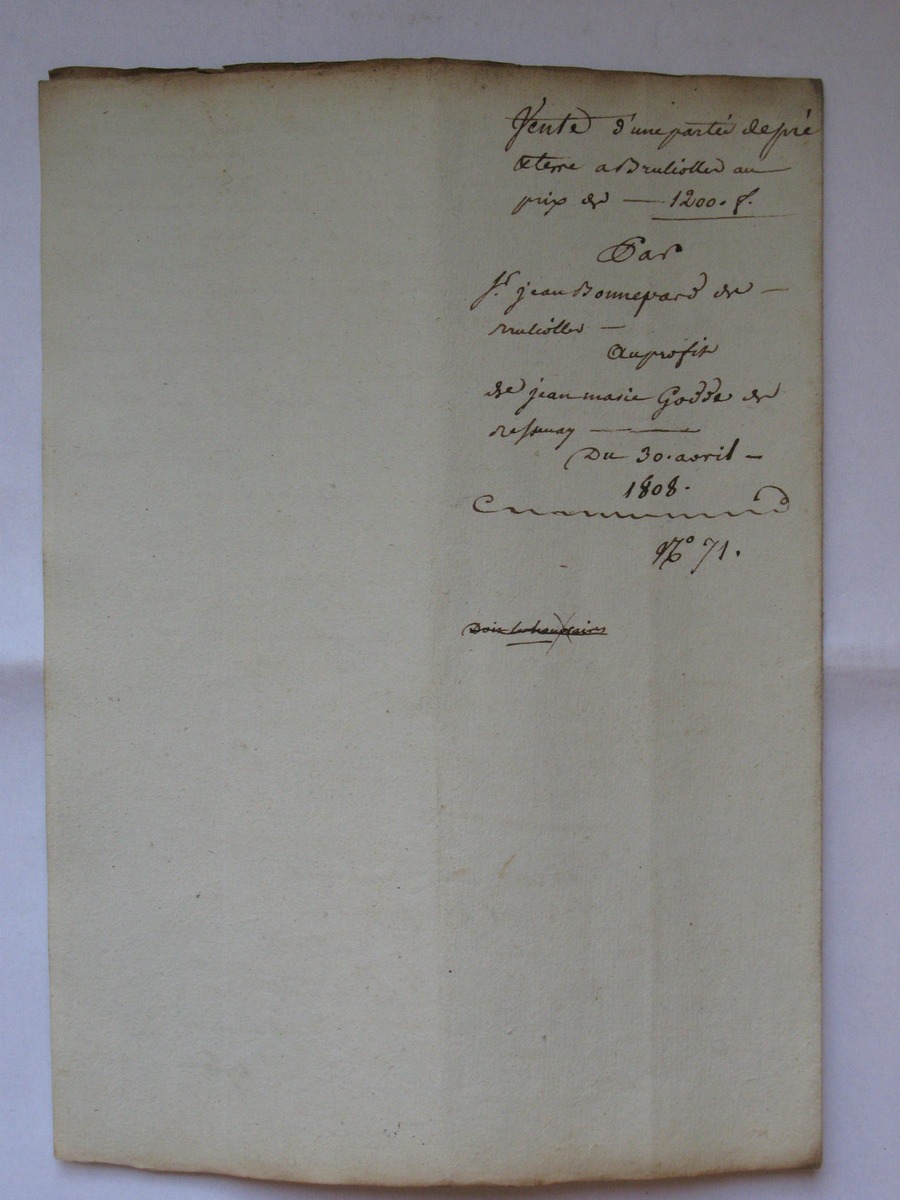 Vente d'une partie de pré
& terre a Bruliolles au
prix de — 1200. f.
Par
Sr. jean Bonnepard de —
Bruliolles —
Au profit
de jean marie Godde de
Bessenay —
Du 30. avril —
1808.
No 71.
Doit